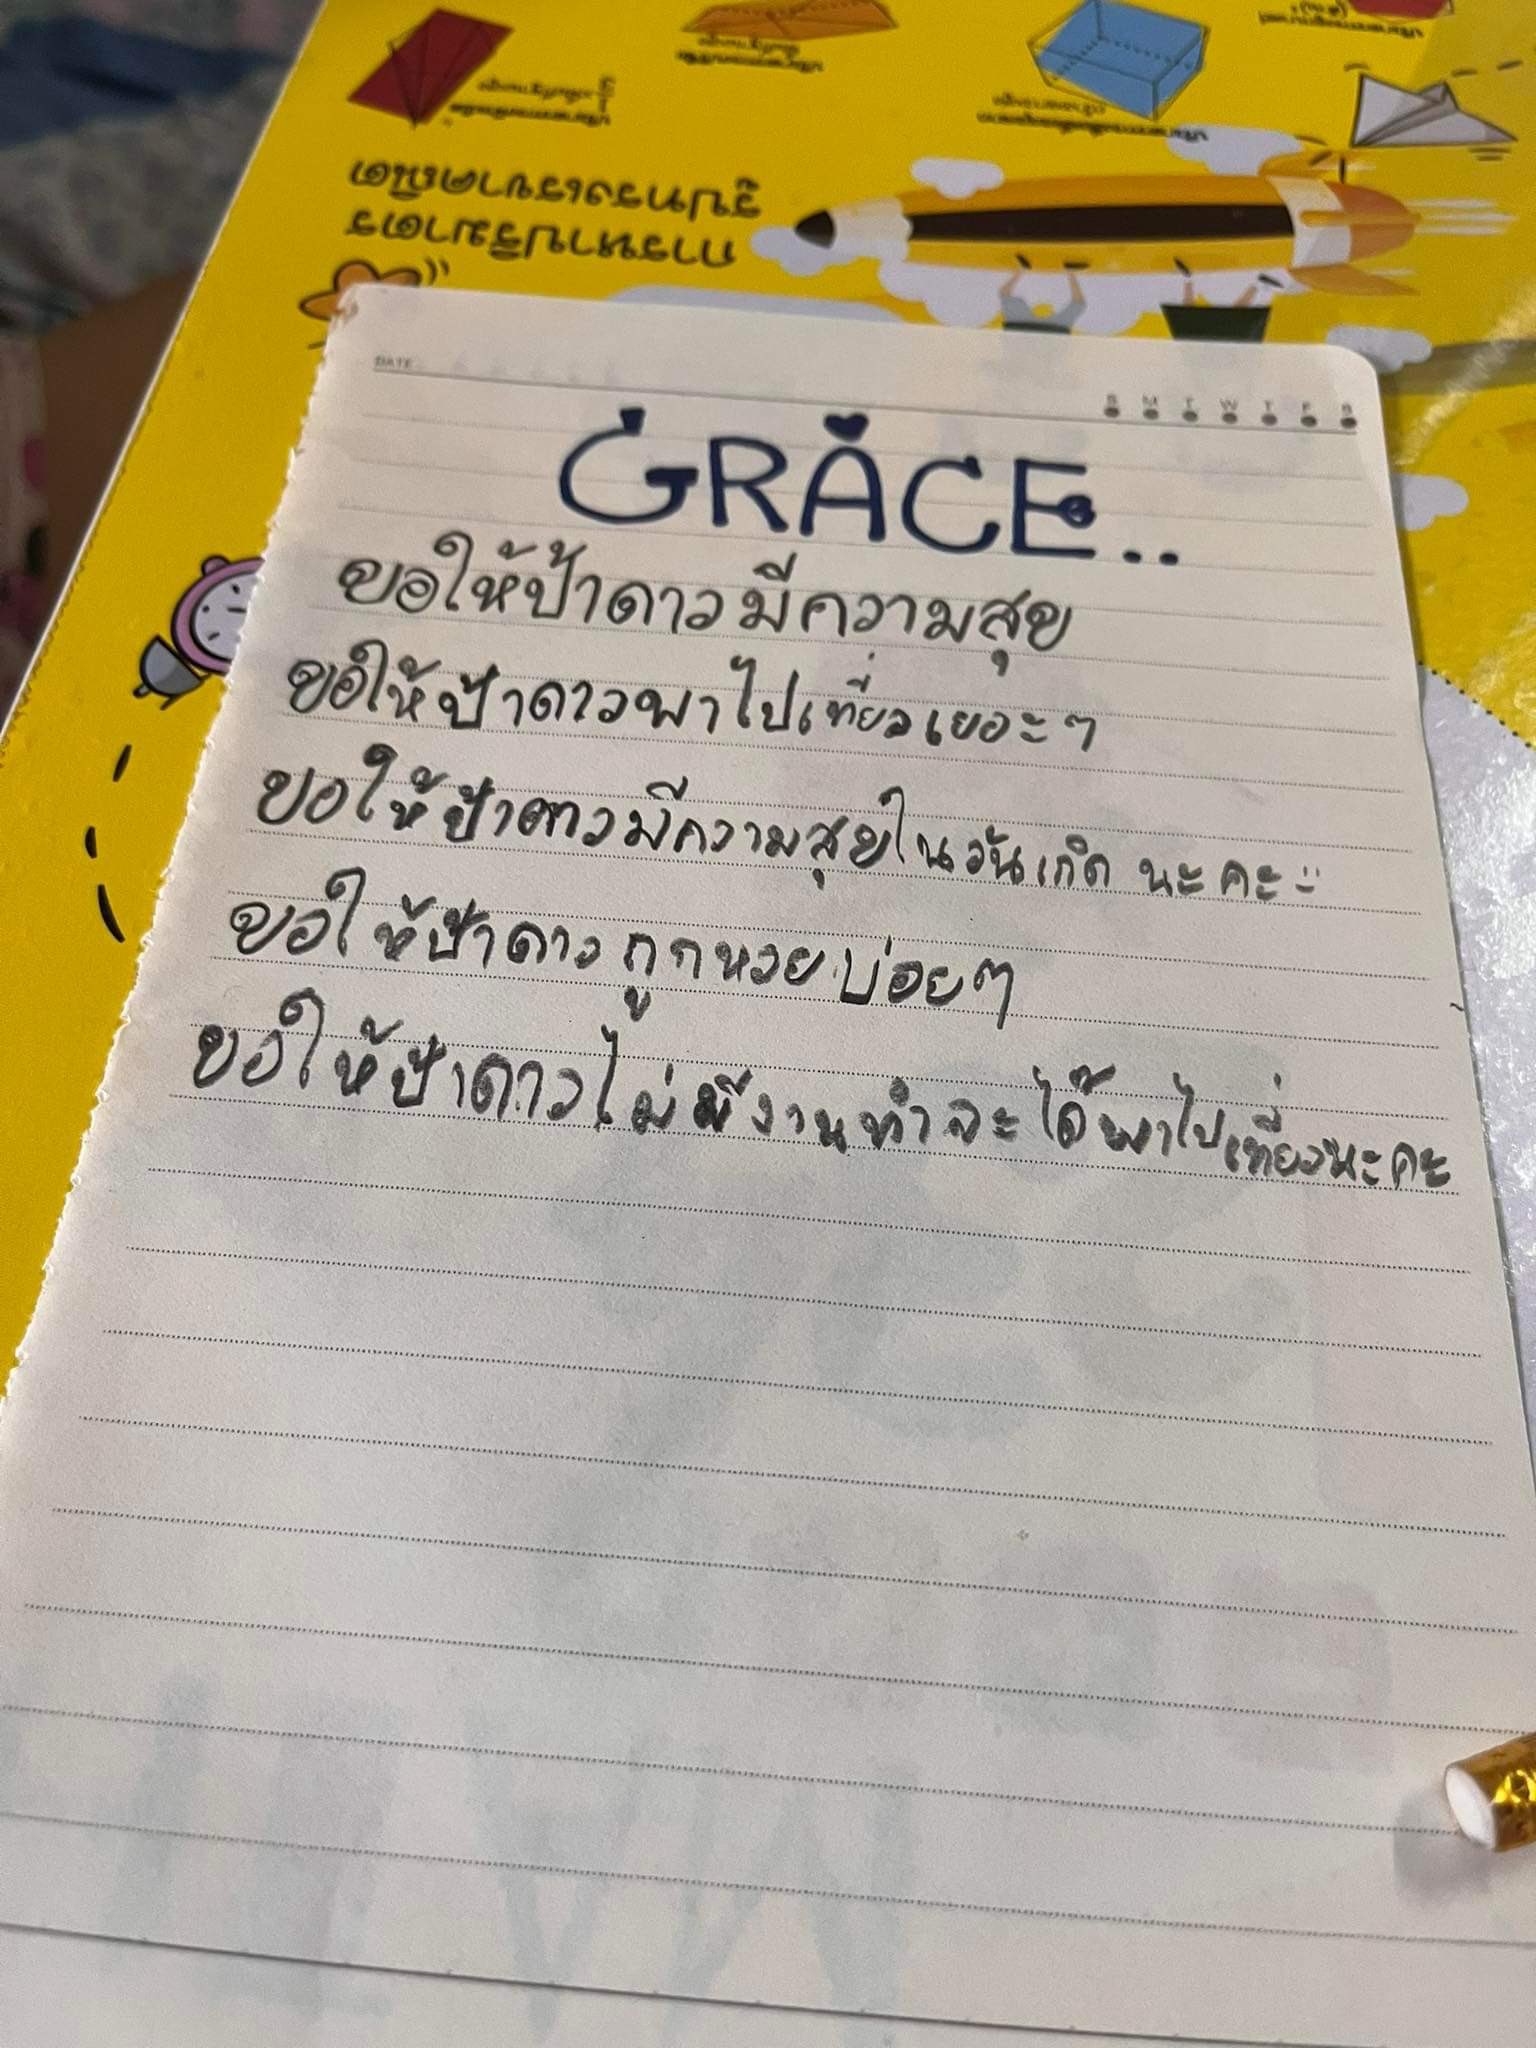 DATE
S M T W T F S
GRACE..
ขอให้ป้าดาวมีความสุข
ขอให้ป้าดาวพาไปเที่ยวเยอะๆ
ขอให้ป้าดาวมีความสุขในวันเกิด นะคะ
ขอให้ป้าดาวถูกหวยบ่อยๆ
ขอให้ป้าดาวไม่มีงานทำจะได้พาไปเที่ยวนะคะ